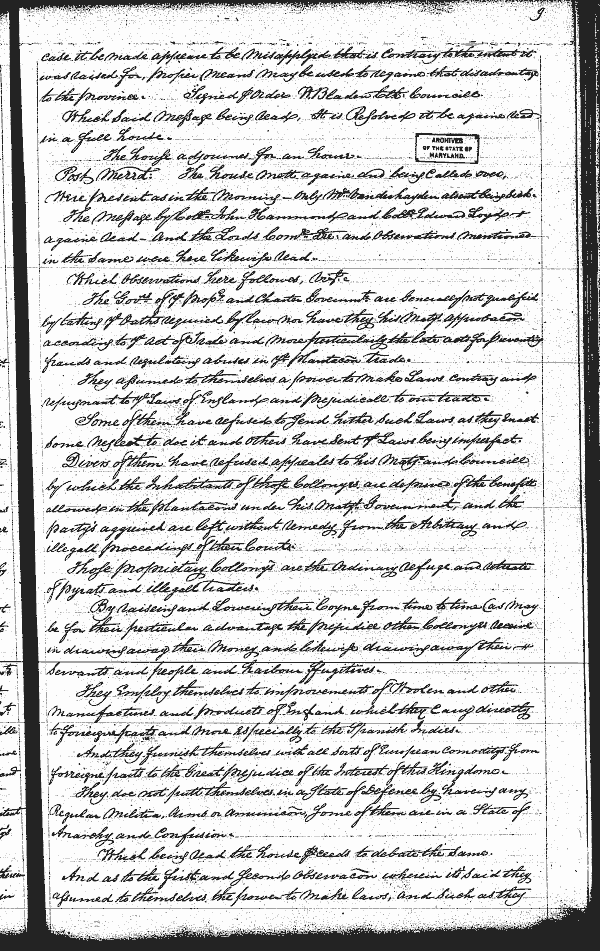 9
case it be made appeare to be Misapplyed that is Contrary to the intent it
was raised for, proper Means may be used to regaine that disadvantage
to the province. Signed p Order W Bladen Clk Councill
Which Said Message being read, It is Resolved it be againe read
in a full house.
ARCHIVES
OF THE STATE OF
MARYLAND.
The house adjournes for an houre.
Post Merid: The house mett againe and being Called over,
Were present as in the Morning - only Mr Vanderhayden absent being Sick.
The Message by Coll John Hammond and Coll Edward
againe read - And the Lords and Observations mentioned
in the Same were here likewise read.
Which Observations here followes, Vizt.
The Govts of ye Propr and Charter Governmts are Generally not qualified
by taking ye Oaths required by law nor have they his Matys Approbacon
according to ye Act of Trade and More particularly the late acts for preventing
frauds and regulating abuses in ye plantacon trade.
They assumed to themselves a power to Make Laws Contrary and
repugnant to ye Laws of England and prejudicall to our trade.
Some of them have refused to Send hither Such Laws as they Enact
Some Neglect to doe it and others have Sent ye Laws being imperfect.
Divers of them have refused appeales to his Maty and Councill
by which the Inhabitants of those Collonys, are deprived of the benefitt
allowed in the plantacons under his Matys Government, and the
partys aggrieved are left without remedy from the Arbitrary and
illegall proceedings of their Courts
Those proprietary Collonys are the Ordinary refuge and retreate
of pyrats and illegall traders.
By raiseing and Lowering their Coyne from time to time (as May
be for their perticular advantage the prejudice other Collonys receive
in drawing away their Money and likewise drawing away their
Servants and people and harbour ffugitives.
They Employ themselves to improvements of Woolen and other
Manufactures and products of England which they Cary directly
to forreigne parts and More Especially to the Spanish Indies.
And they furnish themselves with all Sorts of European Comoditys from
forreigne parts to the Great prejudice of the Interest of this Kingdome.
They doe not putt themselves in a State of Defence by haveing any
Regular Militia, Arms or Ammunicon, Some of them are in a State of
Anarchy and Confusion.
Which being read the house pceeds to debate the Same.
And as to the first and Second Observacon wherein its Said they
assumed to themselves the power to Make laws, and Such as they